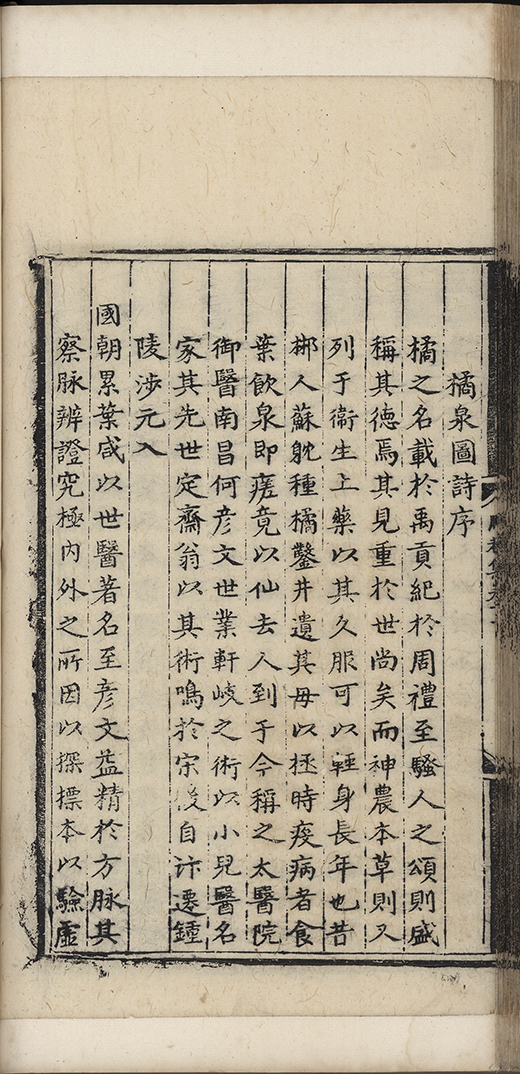 橘泉圖詩序
橘之名載於禹貢紀於周禮至騷人之頌則盛
稱其德焉其見重於世尚矣而神農本草則又
列于衞生上藥以其久服可以輕身長年也昔
郴人蘇躭種橘鑿井遺其母以拯時疫病者食
葉飲泉即瘥竟以仙去人到于今稱之太醫院
御醫南昌何彦文世業軒岐之術以小兒醫名
家其先世定齋翁以其術鳴於宋後自汴遷鍾
陵涉元入
國朝累葉咸以世醫著名至彦文益精於方脉其
察脉辨證究極内外之所因以探標本以驗虛